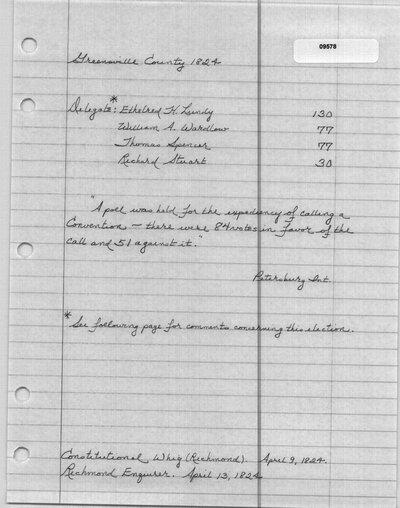 09578
Greensville County 1824
Delegate:* Ethelred H. Lundy 130
William A. Wardlow 77
Thomas Spencer 77
Richard Stuart 30
"A poll was held for the expediency of calling a
Convention — there were 84 votes in favor of the
call and 51 against it."
Petersburg Int.
* See following page for comments concerning this election.
Constitutional Whig (Richmond). April 9, 1824.
Richmond Enquirer. April 13, 1824